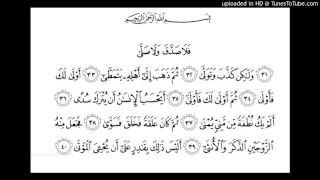 uploaded In HD @ TunesToTube.com
بِسْمِ اللَّهِ الرَّحْمَٰنِ الرَّحِيمِ
فَلَا صَدَّقَ وَلَا صَلَّىٰ
٣١ وَلَٰكِن كَذَّبَ وَتَوَلَّىٰ ٣٢ ثُمَّ ذَهَبَ إِلَىٰ أَهْلِهِ يَتَمَطَّىٰ ٣٣ أَوْلَىٰ لَكَ
فَأَوْلَىٰ ٣٤ ثُمَّ أَوْلَىٰ لَكَ فَأَوْلَىٰ ٣٥ أَيَحْسَبُ الْإِنسَانُ أَن يُتْرَكَ سُدًى ٣٦
أَلَمْ يَكُ نُطْفَةً مِّن مَّنِيٍّ يُمْنَىٰ ٣٧ ثُمَّ كَانَ عَلَقَةً فَخَلَقَ فَسَوَّىٰ ٣٨ فَجَعَلَ مِنْهُ
الزَّوْجَيْنِ الذَّكَرَ وَالْأُنثَىٰ ٣٩ أَلَيْسَ ذَٰلِكَ بِقَادِرٍ عَلَىٰ أَن يُحْيِيَ الْمَوْتَىٰ ٤٠